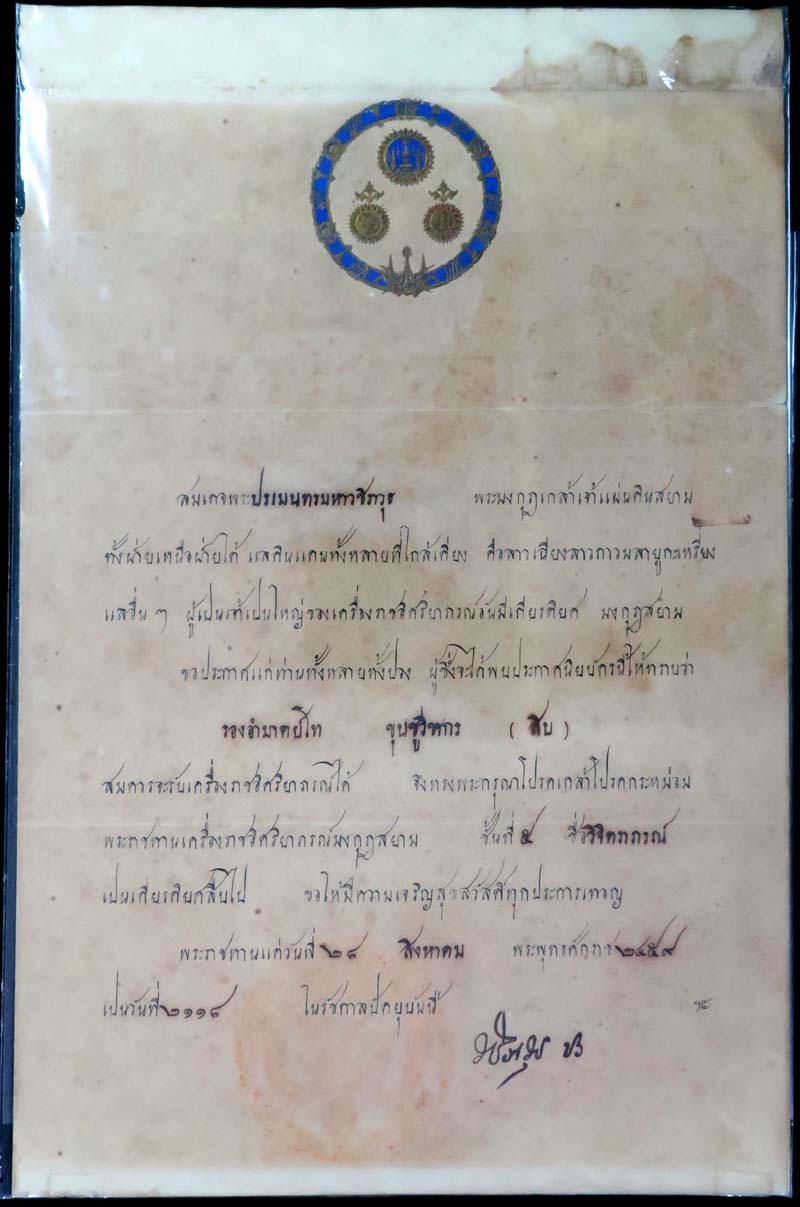 สมเดจพระปรเมนทรมหาวชิราวุธ พระมงกุฎเกล้าเจ้าแผ่นดินสยาม
ทั้งฝ่ายเหนือฝ่ายใต้ แลดินแดนทั้งหลายที่ใกล้เคียง คือลาวเฉียงลาวกาวมลายูกะเหรี่ยง
แลอื่น ๆ ผู้เป็นเจ้าเป็นใหญ่ของเครื่องราชอิศริยาภรณ์อันมีเกียรติยศ มงกุฎสยาม
ขอประกาศแก่ท่านทั้งหลายทั้งปวง ผู้ซึ่งจะได้พบประกาศนิยบัตรนี้ให้ทราบว่า
รองอำมาตย์โท ขุน (สิน)
สมควรจะรับเครื่องราชอิศริยาภรณ์ได้ จึงทรงพระกรุณาโปรดเกล้าโปรดกระหม่อม
พระราชทานเครื่องราชอิศริยาภรณ์มงกุฎสยาม ชั้นที่ ๕ ชื่อวิจิตราภรณ์
เป็นเกียรติยศสืบไป ขอให้มีความเจริญสุขสวัสดิ์ทุกประการเทอญ
พระราชทานแต่วันที่ ๒๘ สิงหาคม พระพุทธศักราช ๒๔๕๙
เป็นวันที่ ๒๑๑๘ ในรัชกาลปัตยุบันนี้
วชิราวุธ ปร